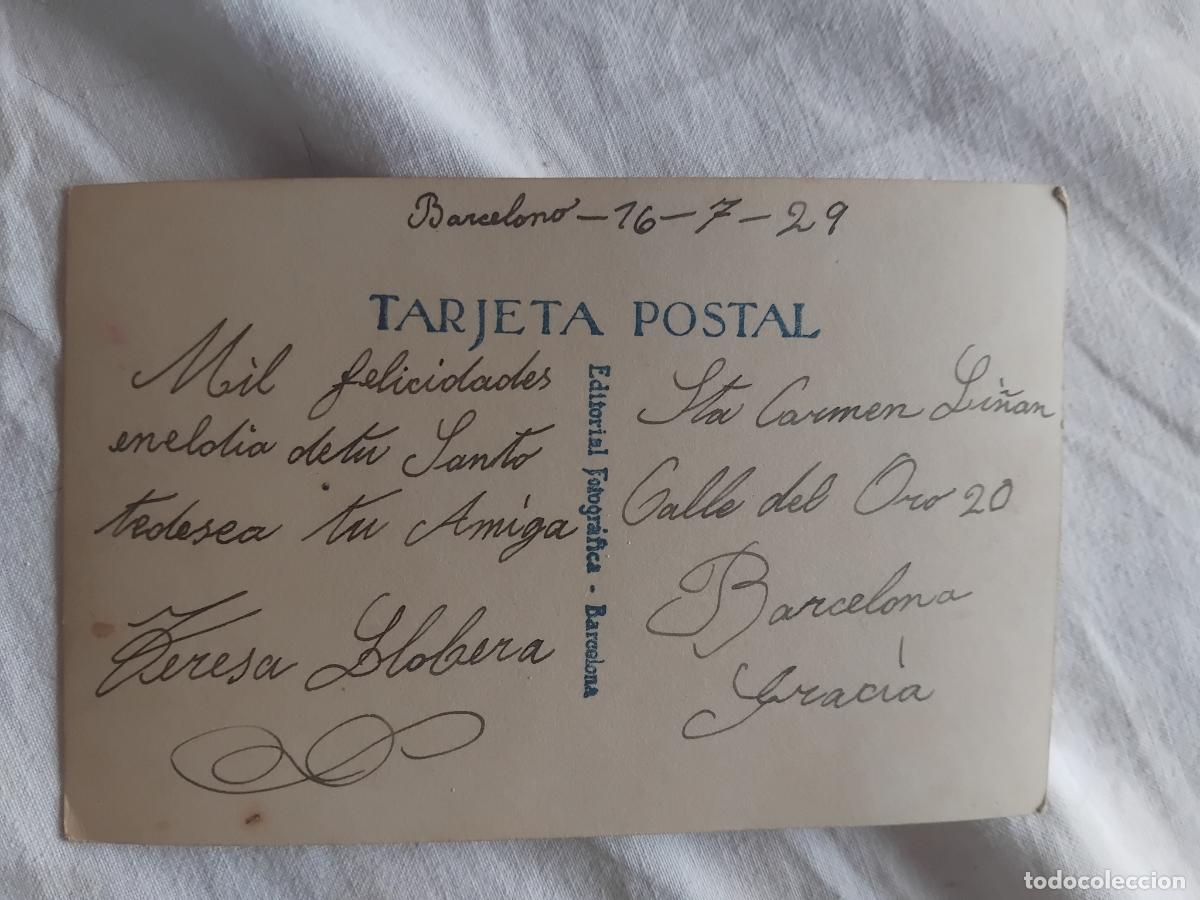 Barcelona - 16 - 7 - 29
TARJETA POSTAL
Mil felicidades
eneldia detu Santo
tedesea tu Amiga
Teresa Llobera
Editorial Fotográfica - Barcelona
Sta Carmen Liñan
Calle del Oro 20
Barcelona
Gracia
todocoleccion